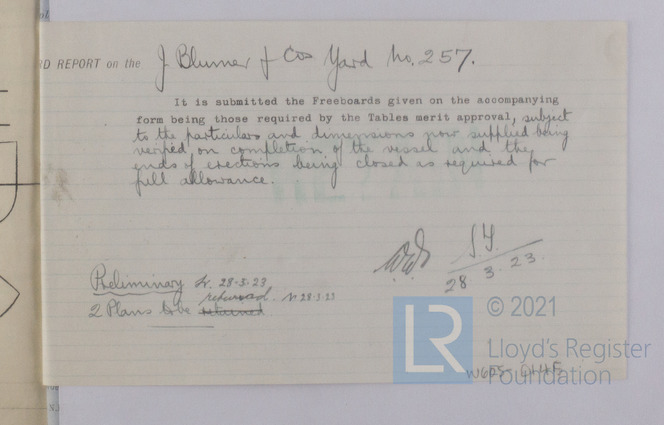 D REPORT on the J Blumer & Cos Yard No. 257.
It is submitted the Freeboards given on the accompanying
form being those required by the Tables merit approval, subject
to the particulars and dimensions now supplied being
verified on completion of the vessel and the
ends of erections being closed as required for
full allowance.
28.3.23.
Preliminary 28-3-23
returned 28.3.23
2 Plans to be retained
© 2021
LR
Lloyd's Register
Foundation
W625-0145